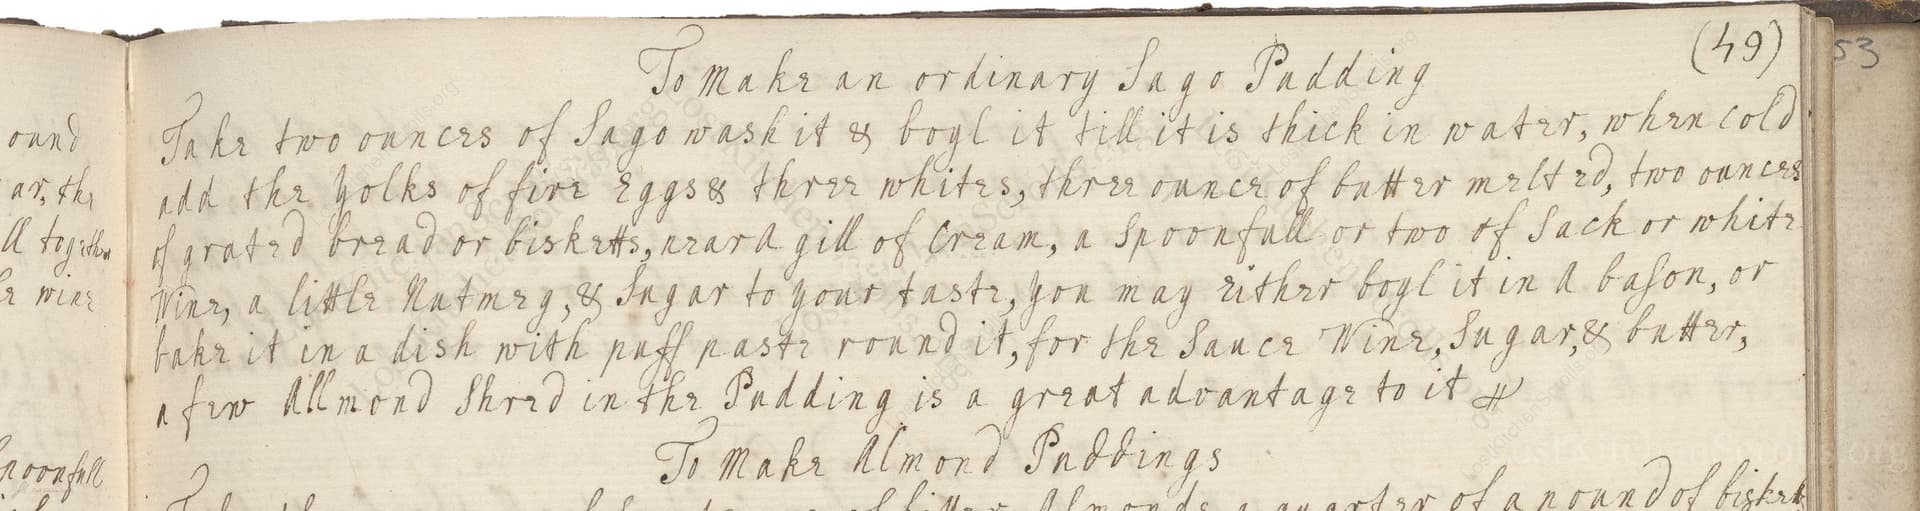 (49)
53
To Make an ordinary Sago Pudding
Take two ounces of Sago wash it & boyl it till it is thick in water, when cold
add the Yolks of five Eggs & three whites, three ounce of butter melted, two ounces
of grated bread or bisketts, near a gill of Cream, a Spoonfull or two of Sack or white
Wine, a little Nutmeg, & Sugar to your taste, you may either boyl it in a bason, or
bake it in a dish with puff paste round it, for the Sauce Wine, Sugar, & butter,
a few Allmond Shred in the Pudding is a great advantage to it
To Make Almond Puddings
of bitter Almonds a quarter of a pound of bisket
ound
ar, the
ll together
wine
poonfull